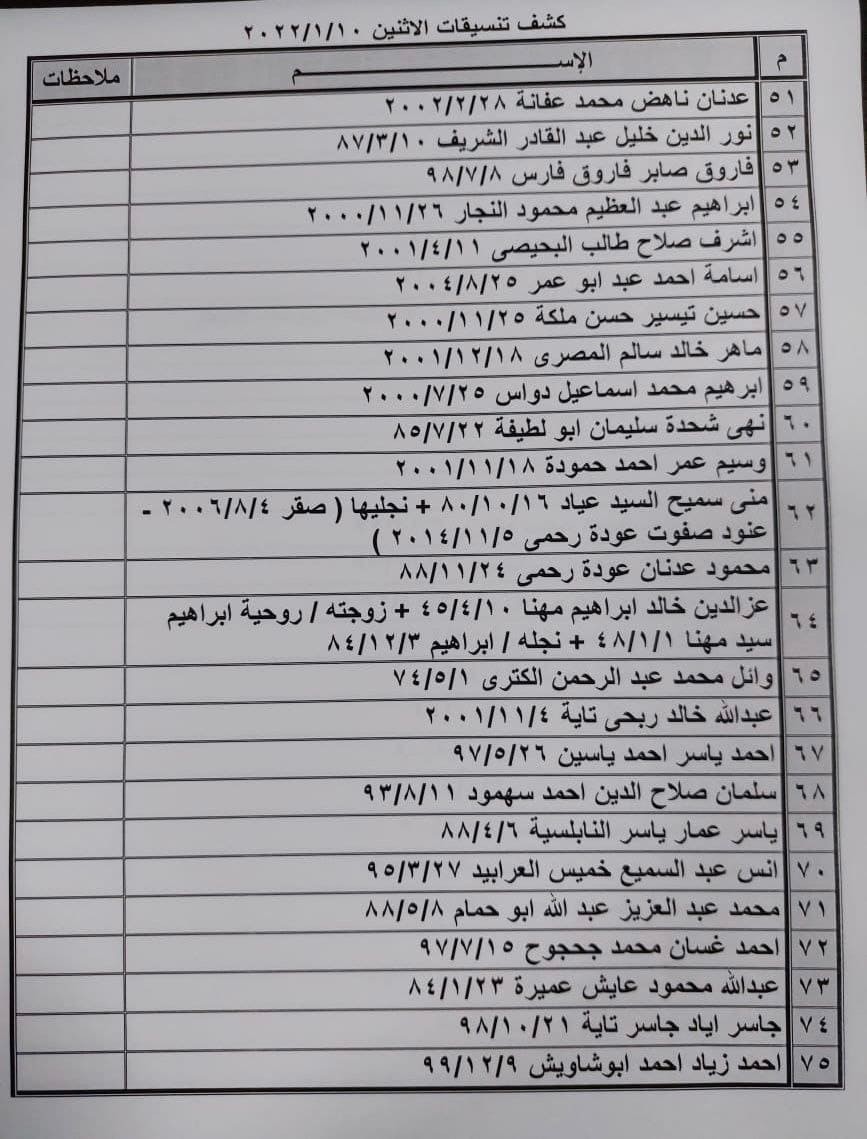 كشف تنسيقات الاثنين ٢٠٢٢/١/١٠
م الإســـــــــم ملاحظات
٥١ عدنان ناهض محمد عفانة ٢٠٠٢/٢/٢٨
٥٢ نور الدين خليل عبد القادر الشريف ٨٧/٣/١٠
٥٣ فاروق صابر فاروق فارس ٩٨/٧/٨
٥٤ ابراهيم عبد العظيم محمود النجار ٢٠٠٠/١١/٢٦
٥٥ اشرف صلاح طالب البحيصى ٢٠٠١/٤/١١
٥٦ اسامة احمد عبد ابو عمر ٢٠٠٤/٨/٢٥
٥٧ حسين تيسير حسن ملكة ٢٠٠٠/١١/٢٥
٥٨ ماهر خالد سالم المصرى ٢٠٠١/١٢/١٨
٥٩ ابرهيم محمد اسماعيل دواس ٢٠٠٠/٧/٢٥
٦٠ نهى شحدة سليمان ابو لطيفة ٨٥/٧/٢٢
٦١ وسيم عمر احمد حمودة ٢٠٠١/١١/١٨
٦٢ منى سميح السيد عياد ٨٠/١٠/١٦ + نجليها ( صقر ٢٠٠٦/٨/٤ -
عنود صفوت عودة رحمى ٢٠١٤/١١/٥ )
٦٣ محمود عدنان عودة رحمى ٨٨/١١/٢٤
٦٤ عزالدين خالد ابراهيم مهنا ٤٥/٤/١٠ + زوجته / روحية ابراهيم
سيد مهنا ٤٨/١/١ + نجله / ابراهيم ٨٤/١٢/٣
٦٥ وائل محمد عبد الرحمن الكترى ٧٤/٥/١
٦٦ عبدالله خالد ربحى تاية ٢٠٠١/١١/٤
٦٧ احمد ياسر احمد ياسين ٩٧/٥/٢٦
٦٨ سلمان صلاح الدين احمد سهمود ٩٣/٨/١١
٦٩ ياسر عمار ياسر النابلسية ٨٨/٤/٦
٧٠ انس عبد السميع خميس العرابيد ٩٥/٣/٢٧
٧١ محمد عبد العزيز عبد الله ابو حمام ٨٨/٥/٨
٧٢ احمد غسان محمد جحجوح ٩٧/٧/١٥
٧٣ عبدالله محمود عايش عميرة ٨٤/١/٢٣
٧٤ جاسر اياد جاسر تاية ٩٨/١٠/٢١
٧٥ احمد زياد احمد ابوشاويش ٩٩/١٢/٩